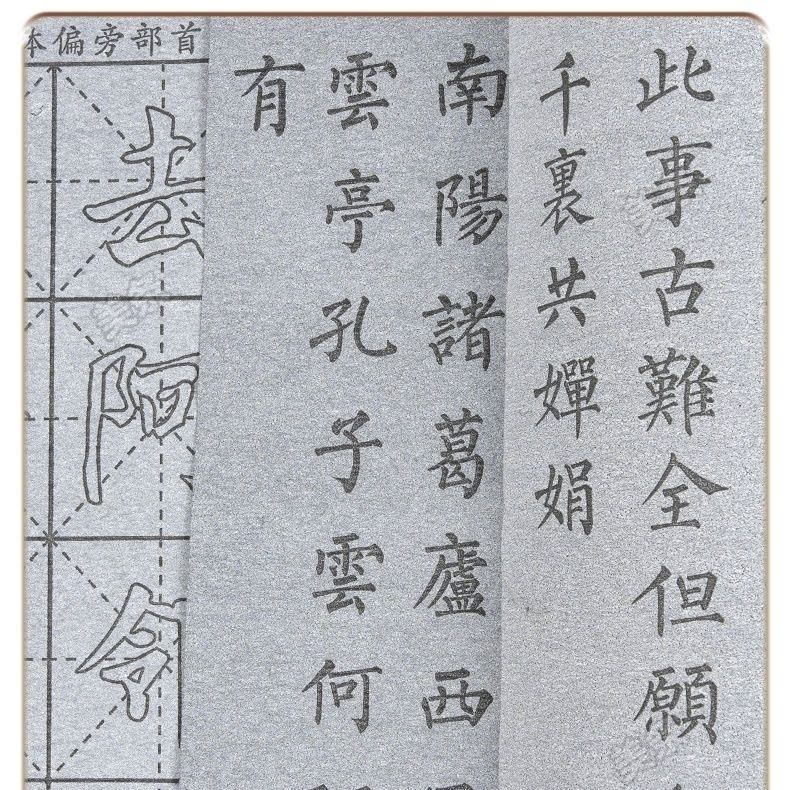 此事古難全但願
千裏共嬋娟
南陽諸葛廬西
雲亭孔子雲何
有
本偏旁部首
去
阿
令